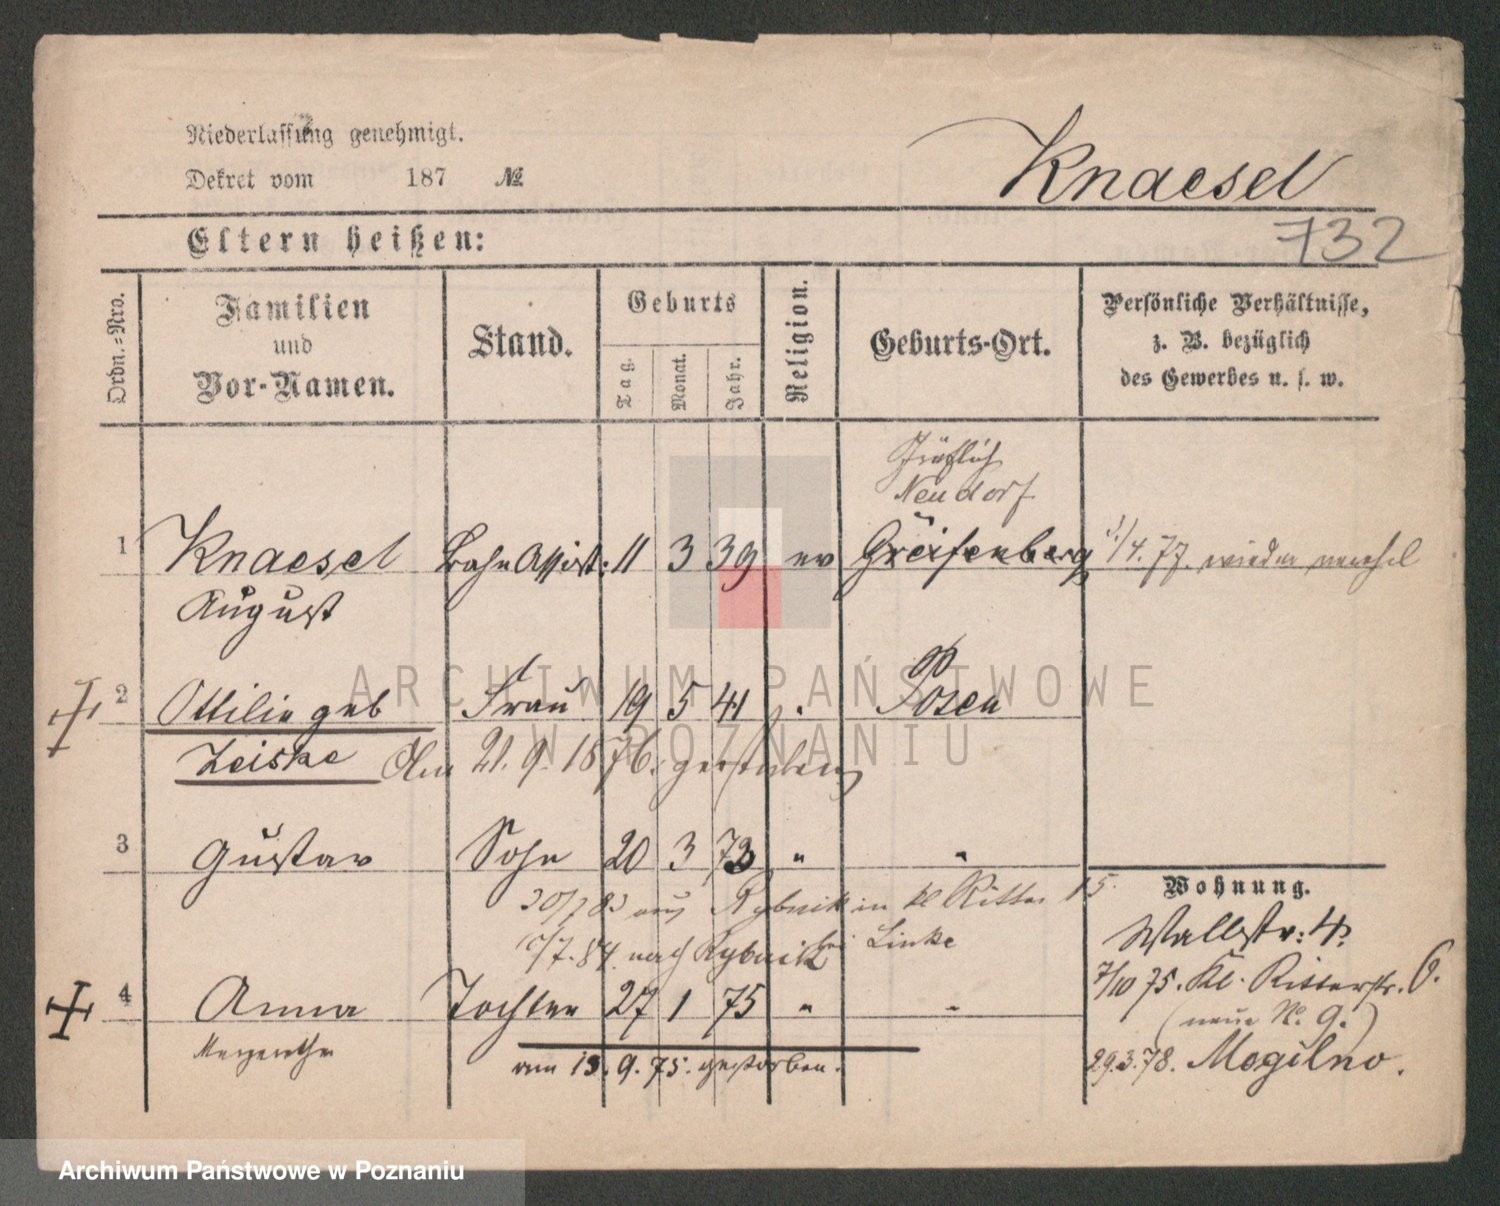 Niederlassung genehmigt.
Dekret vom 187 №
Knaesel
732
Eltern heißen:
Ordn.-Nro.
Familien
und
Vor-Namen.
Stand.
Geburts
Tag.
Monat.
Jahr.
Religion.
Geburts-Ort.
Persönliche Verhältnisse,
z. B. bezüglich
des Gewerbes u. s. w.
Gräflich
Neudorf
1 Knaesel Bahn Assist: 11 3 39 ev Greifenberg /4.77. wieder verehel
August
2 Ottilie geb Frau 19 5 41 Posen
Zeiske Am 21. 9. 1876. gestorben
3 Gustav Sohn 20 3 73 " "
30/7 83 aus Rybnik in kl Ritter 15.
/7. 84. nach Rybnik bei Linke
4 Anna Tochter 27 1 75 " "
Margarethe
am 13. 9. 75. gestorben.
Wohnung.
Wallstr: 4.
7/10 75. Kl. Ritterstr. 6.
(neue No. 9.)
29.3.78. Mogilno.
ARCHIWUM PAŃSTWOWE
W POZNANIU
Archiwum Państwowe w Poznaniu